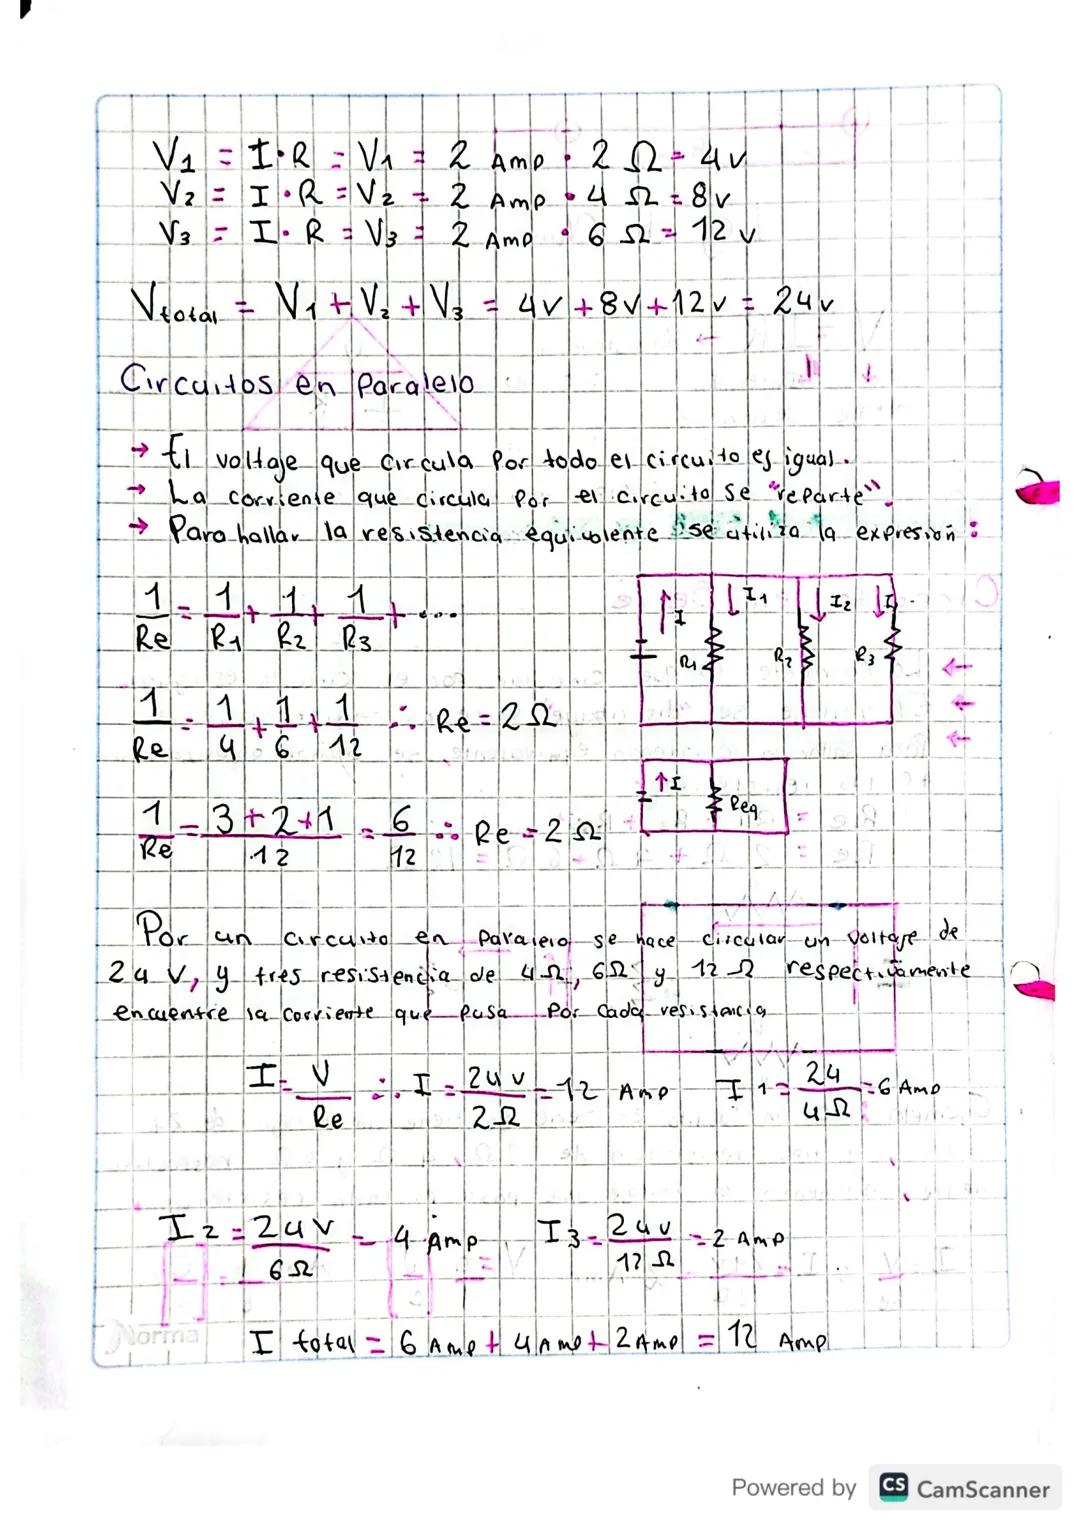 V1 = I·R = V1 = 2 Amp · 2 Ω = 4v
V2 = I·R = V2 = 2 Amp · 4 Ω = 8v
V3 = I·R = V3 = 2 Amp · 6 Ω = 12v
Vtotal = V1 + V2 + V3 = 4v + 8v + 12v = 24v
Circuitos en Paralelo
→ El voltaje que circula por todo el circuito es igual.
→ La corriente que circula por el circuito se "reparte".
→ Para hallar la resistencia equivalente se utiliza la expresión:
1/Re = 1/R1 + 1/R2 + 1/R3 + ....
I I1 I2 I
R1 R2 R3
1/Re = 1/4 + 1/6 + 1/12 ∴ Re = 2 Ω
I Req
1/Re = 3+2+1/12 = 6/12 ∴ Re = 2 Ω
Por un circuito en paralelo se hace circular un voltaje de
24 V, y tres resistencia de 4Ω, 6Ω y 12 Ω respectivamente
encuentre la corriente que pasa por cada resistencia
I = V/Re ∴ I = 24v/2Ω = 12 Amp I1 = 24/4Ω = 6 Amp
I2 = 24V/6Ω = 4 Amp I3 = 24v/12Ω = 2 Amp
Norma
I total = 6 Amp + 4 Amp + 2 Amp = 12 Amp
Powered by CS CamScanner